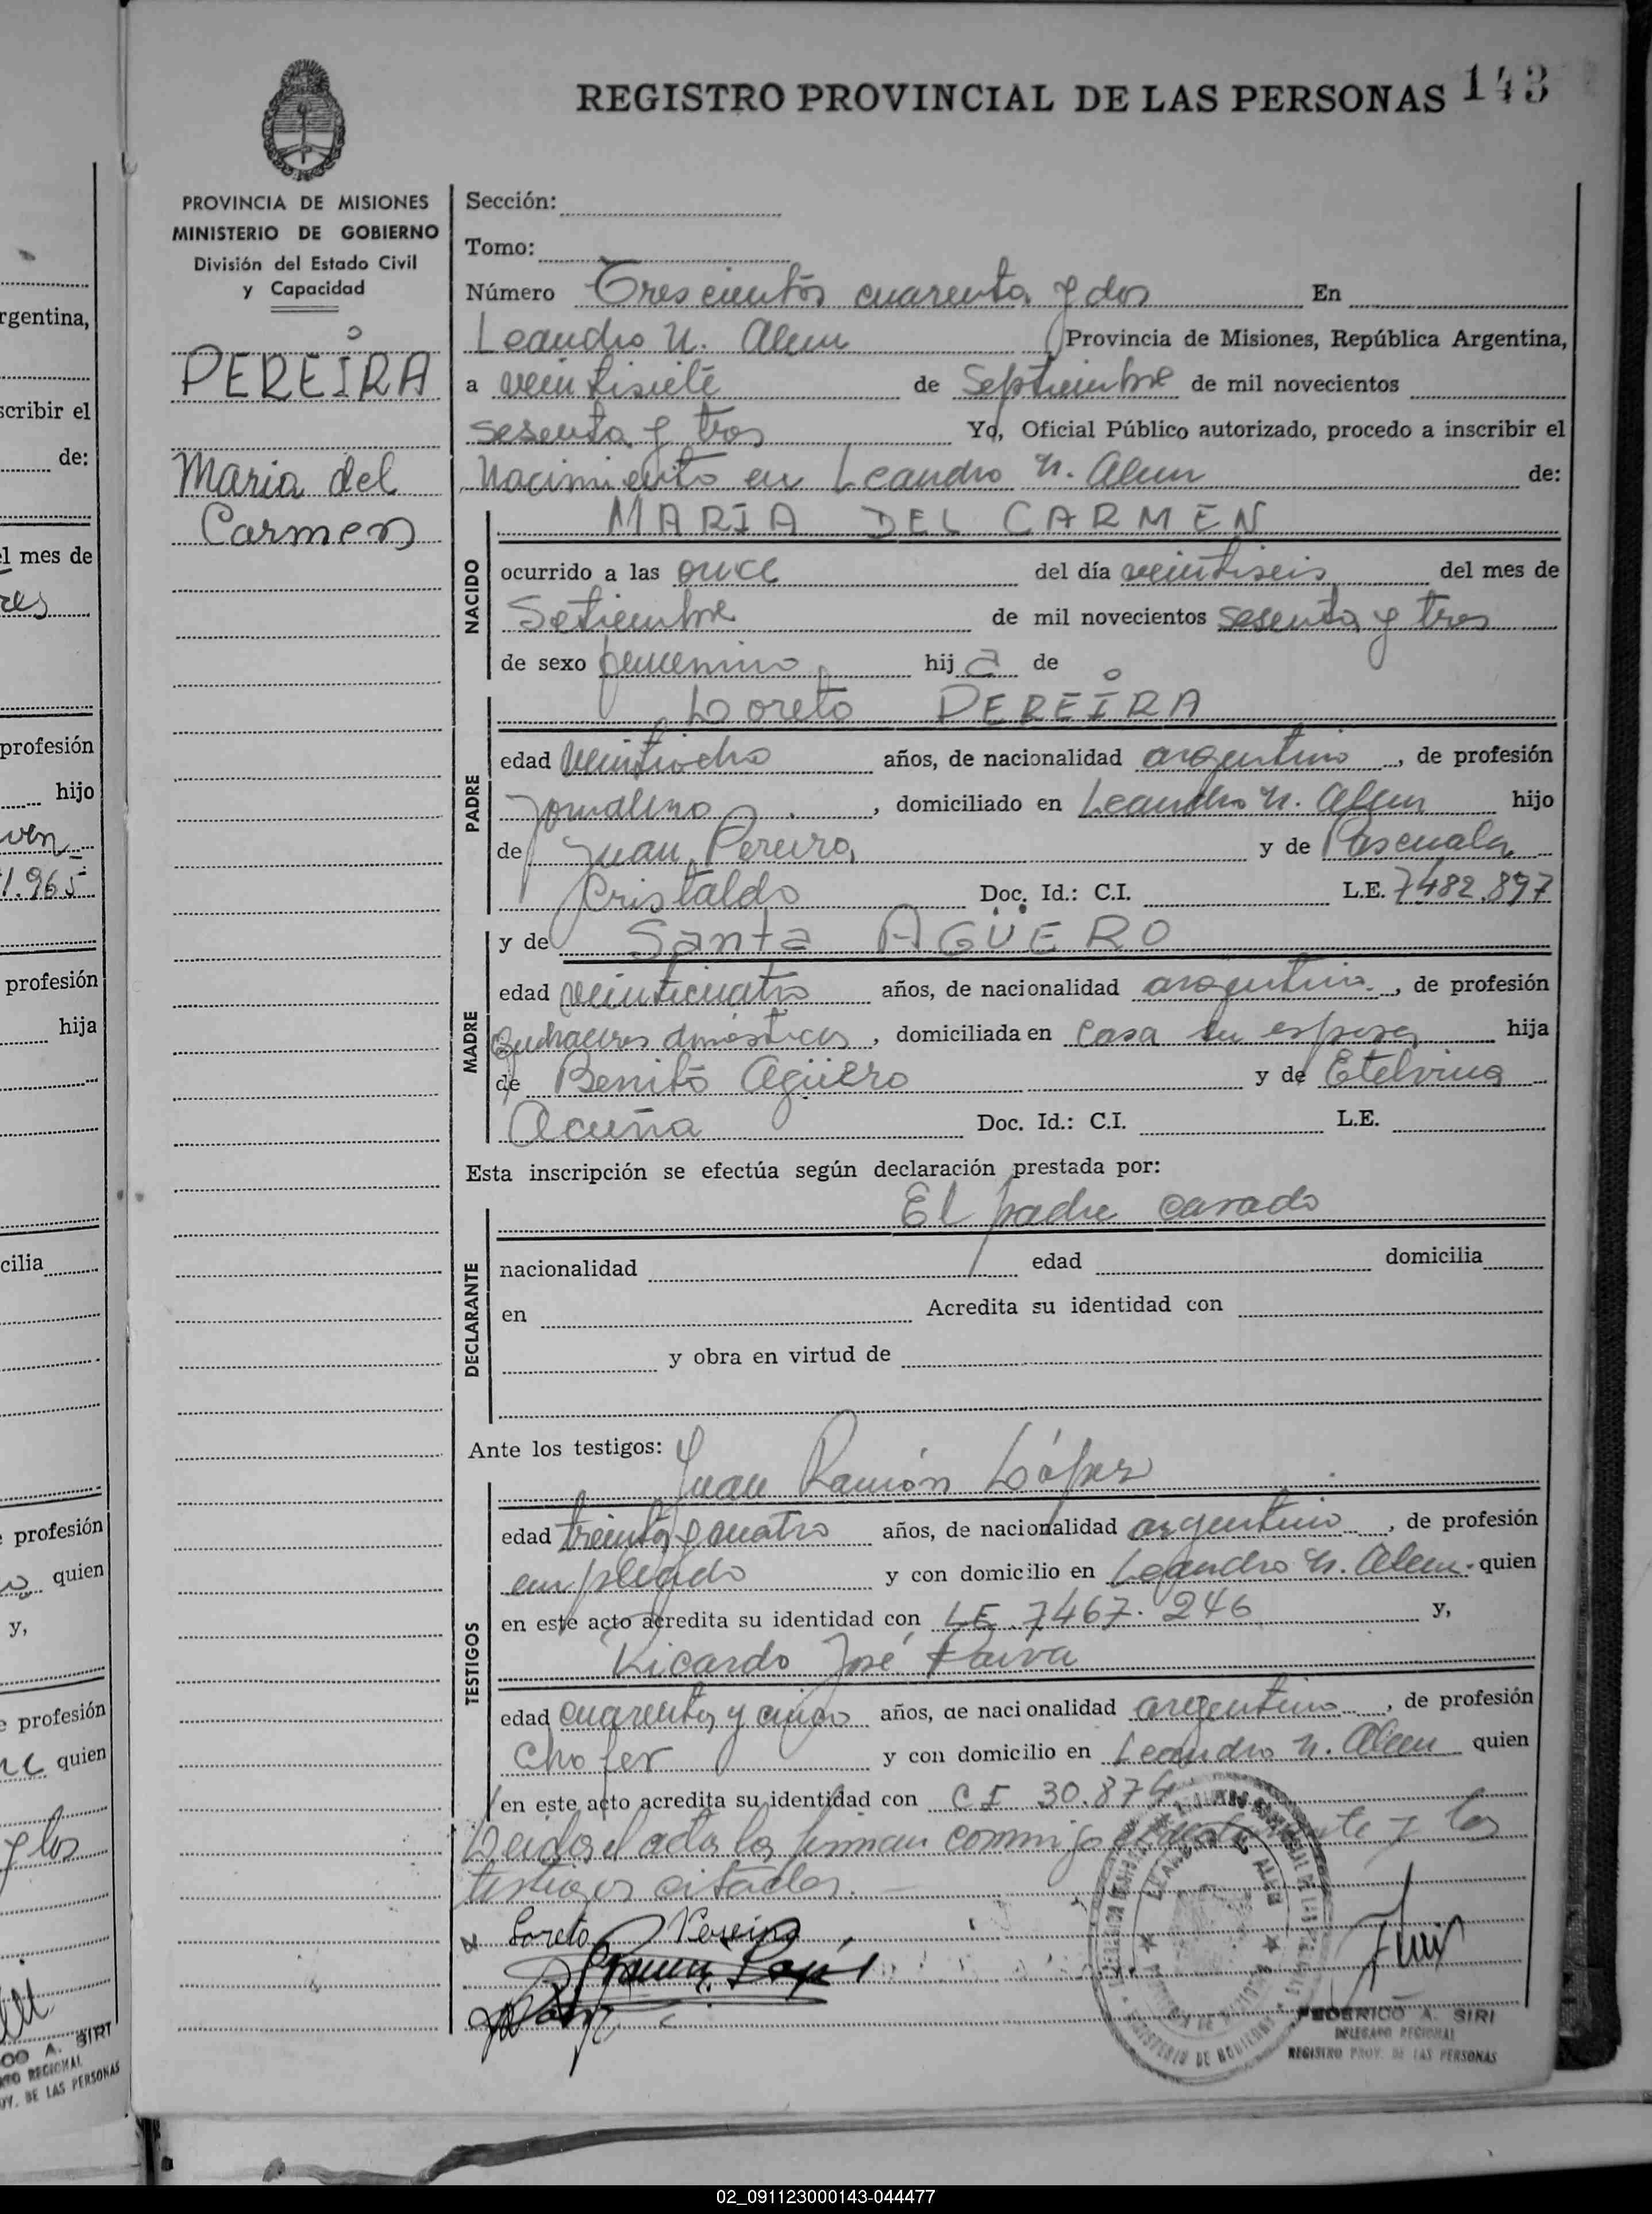 REGISTRO PROVINCIAL DE LAS PERSONAS 143
PROVINCIA DE MISIONES
MINISTERIO DE GOBIERNO
División del Estado Civil
y Capacidad
PEREIRA
Maria del
Carmen
Sección:
Tomo:
Número Trescientos cuarenta y dos En
Leandro N. Alem Provincia de Misiones, República Argentina,
a veintisiete de Septiembre de mil novecientos
sesenta y tres Yo, Oficial Público autorizado, procedo a inscribir el
Nacimiento en Leandro N. Alem de:
NACIDO
MARIA DEL CARMEN
ocurrido a las once del día veintiseis del mes de
Setiembre de mil novecientos sesenta y tres
de sexo femenino hija de
PADRE
Loreto PEREIRA
edad veintiocho años, de nacionalidad argentino, de profesión
Jornalero, domiciliado en Leandro N. Alem hijo
de Juan Pereira y de Pascuala
Cristaldo Doc. Id.: C.I. L.E. 7482.897
MADRE
y de Santa AGÜERO
edad veinticuatro años, de nacionalidad argentina, de profesión
Quehaceres domésticos, domiciliada en casa su esposo hija
de Benito Agüero y de Etelvina
Acuña Doc. Id.: C.I. L.E.
Esta inscripción se efectúa según declaración prestada por:
DECLARANTE
El padre casado
nacionalidad edad domicilia
en Acredita su identidad con
y obra en virtud de
Ante los testigos: Juan Ramón López
TESTIGOS
edad treinta y cuatro años, de nacionalidad argentino, de profesión
empleado y con domicilio en Leandro N. Alem. quien
en este acto acredita su identidad con LE. 7467.246 y,
Ricardo José Paiva
edad cuarenta y cinco años, de nacionalidad argentino, de profesión
Chofer y con domicilio en Leandro N. Alem quien
en este acto acredita su identidad con C I 30.874
Leida el acta la firman conmigo y los
testigos citados.
Loreto Pereira
FEDERICO A. SIRI
DELEGADO REGIONAL
REGISTRO PROV. DE LAS PERSONAS
rgentina,
scribir el
de:
l mes de
res
profesión
hijo
1.965
profesión
hija
cilia
profesión
quien
y,
profesión
quien
y los
02_091123000143-044477